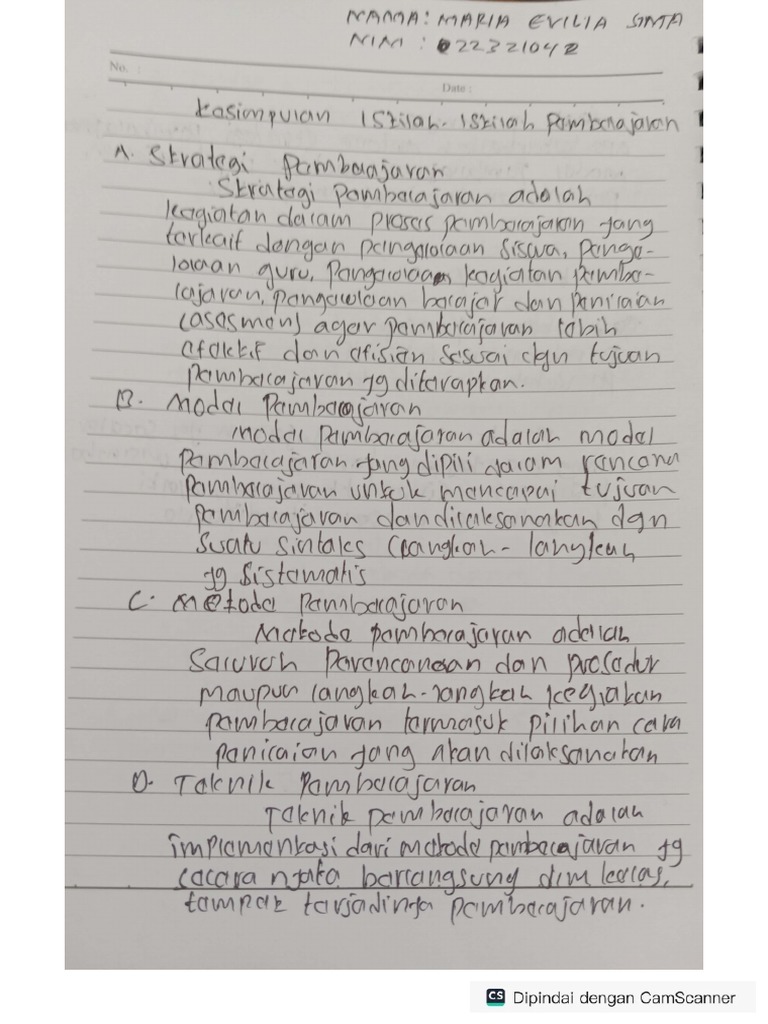 NAMA: MARIA EVILIA SINTA
NIM : 022321042
No. :
Date :
Kesimpulan Istilah-Istilah Pembelajaran
A. Strategi Pembelajaran
Strategi Pembelajaran adalah
kegiatan dalam proses pembelajaran yang
terkait dengan pengelolaan siswa, penge-
lolaan guru, Pengelolaan kegiatan pembe-
lajaran, pengelolaan belajar dan penilaian
(asesmen) agar pembelajaran lebih
efektif dan efisien sesuai dgn tujuan
pembelajaran yg diterapkan.
B. Model Pembelajaran
Model Pembelajaran adalah model
pembelajaran yang dipili dalam rencana
pembelajaran untuk mencapai tujuan
pembelajaran dan dilaksanakan dgn
suatu sintaks (langkah-langkah
yg sistematis
C. Metode Pembelajaran
Metode pembelajaran adalah
Seluruh Perencanaan dan prosedur
maupun langkah-langkah kegiatan
pembelajaran termasuk pilihan cara
penilaian yang akan dilaksanakan
D. Teknik Pembelajaran
Teknik pembelajaran adalah
implementasi dari metode pembelajaran yg
secara nyata berlangsung dlm kelas,
tempat terjadinya pembelajaran.
CS Dipindai dengan CamScanner